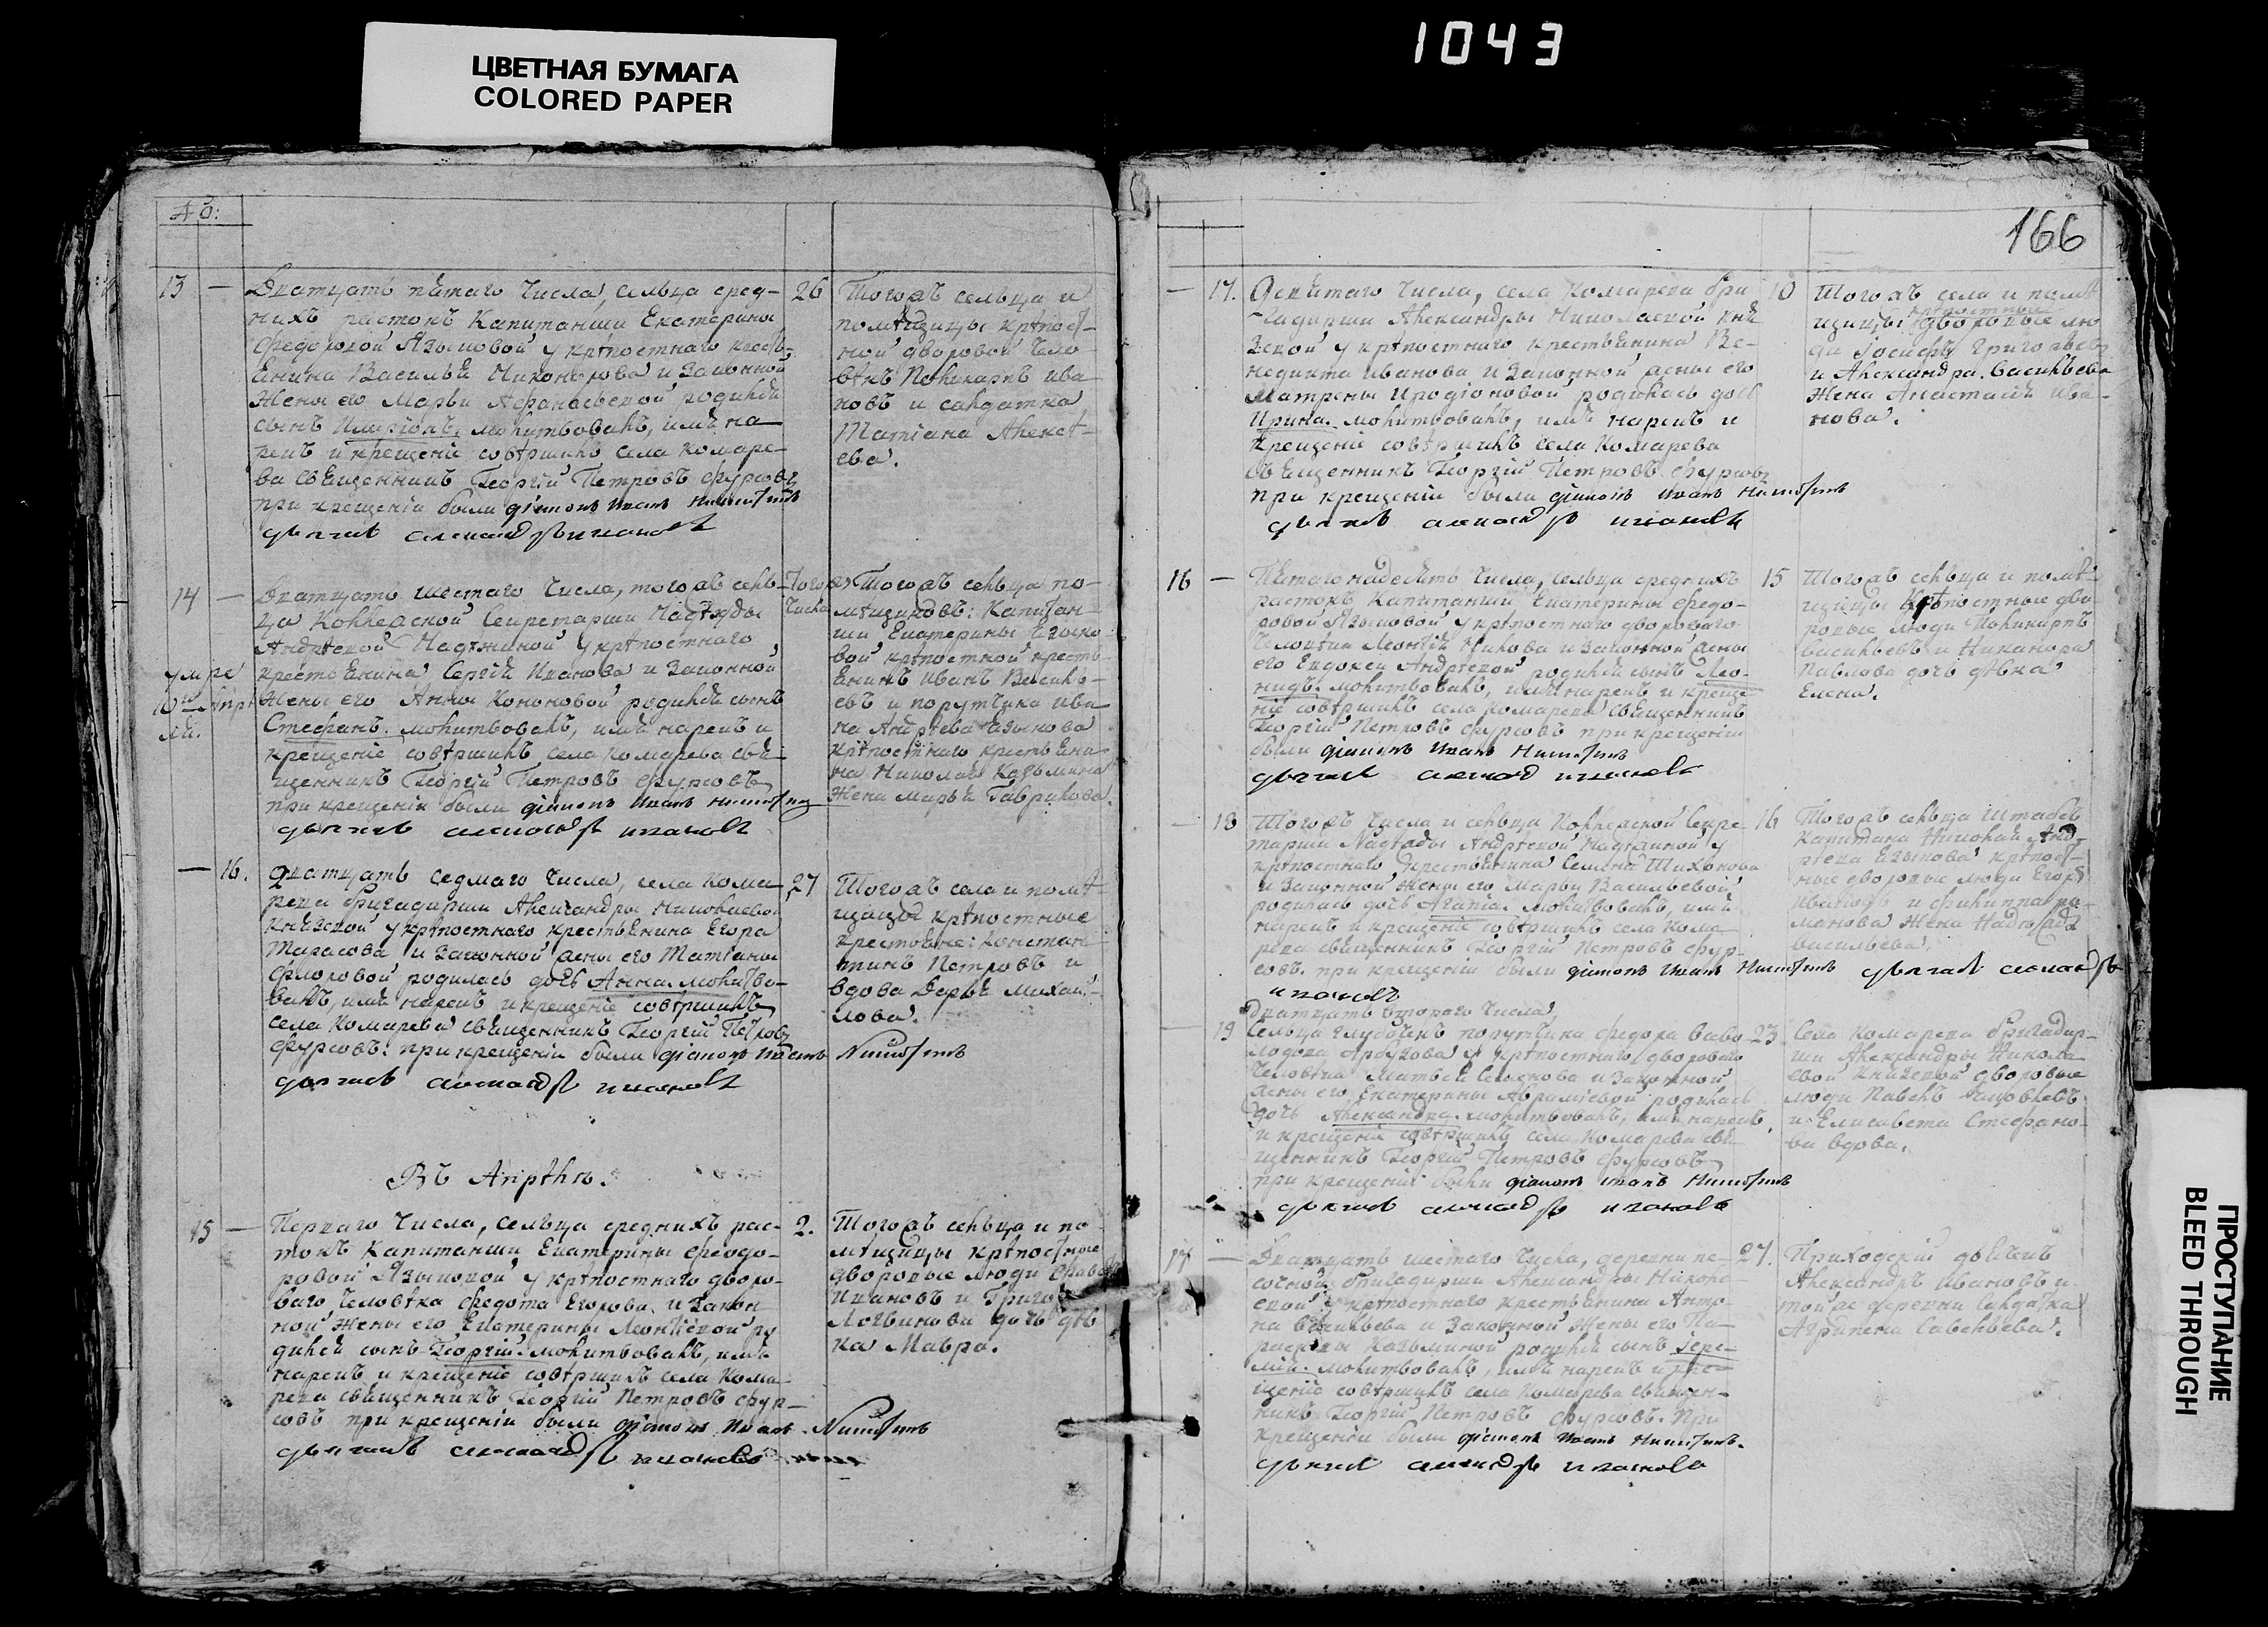 ЦВЕТНАЯ БУМАГА
COLORED PAPER
1043
13 — Дватцать пятаго числа, сельца сред-
нихъ растокъ Капитанши Екатерины
Федоровой Языковой у крѣпостнаго кресть-
янина Василья Никонорова и Законной
жены его Марьи Афанасьевской родился
сынъ Иларіонъ, молитвовалъ, имя на
рекъ и крещеніе совѣршилъ села Комаре-
ва Священникъ Георгій Петровъ Фурсовъ
при крещеніи были діаконъ Иванъ Никитинъ
дьячекъ александръ ивановъ
26 Тогожъ сельца и
помѣщицы крѣпост-
ной дворовой чело-
вѣкъ Поликарпъ Ива
новъ и салдатка
Татіана Алексѣ-
ева.
14 — Дватцать шестаго числа, тогожъ сель-
ца Коллежской Секретарши Надѣжды
Андрѣевой у крѣпостнаго
крестьянина Сергѣя Иванова и Законной
жены его Анны Кононовой родился сынъ
Стефанъ. молитвовалъ, имя нарекъ и
крещеніе совѣршилъ села Комарева свя-
щенникъ Георгій Петровъ Фурсовъ
при крещеніи были діаконъ Иванъ Никитинъ
дьячекъ александръ ивановъ
умре
Апр
Тогожъ
числа
Тогожъ сельца по-
мѣщиковъ: Капитан-
ши Екатерины Языко
вой крѣпостной кресть
янинъ Иванъ Василь-
евъ и порутчика Ива
на Андрѣева Языкова
крѣпостнаго крестьяни-
на Николая Казьмина
жена Марья Гаврилова.
— 16. Дватцать седмаго числа, села Кома-
рева бригадирши Александры Николаевой
Княжской у крѣпостнаго крестьянина Егора
Тарасова и Законной жены его Татіаны
Флоровой родилась дочь Анна. молитво-
валъ, имя нарекъ и крещеніе совѣршилъ
села Комарева священникъ Георгій Петровъ
Фурсовъ: при крещеніи были діаконъ Иванъ Никитинъ
дьячекъ александръ ивановъ
27 Тогожъ села и помѣ-
щицы крѣпостные
крестьяне: Констан-
тинъ Петровъ и
вдова Дарья Михай-
лова.
Въ Апрѣлѣ.
15 — Перваго числа, сельца среднихъ рас-
токъ Капитанши Екатерины Феодо-
ровой Языковой у крѣпостнаго дворо-
ваго человѣка Федота Егорова и Закон
ной жены его Екатерины Леонтіевой ро
дился сынъ Георгій. молитвовалъ, имя
нарекъ и крещеніе совѣршилъ села Кома-
рева священникъ Георгій Петровъ Фур-
совъ при крещеніи были діаконъ Иванъ Никитинъ
дьячекъ александръ ивановъ
2. Тогожъ сельца и по
мѣщицы крѣпостные
дворовые люди
Ивановъ и
Логвинова дочь дѣв
ка Мавра.
166
— 17. Девятаго числа, села Комарева бри
гадирши Александры Николаевой Кня
жской у крѣпостнаго крестьянина Ве-
недикта Иванова и Законной жены его
Матрены Иродіоновой родилась дочь
Ирина. молитвовалъ, имя нарекъ и
крещеніе совѣршилъ села Комарева
священникъ Георгій Петровъ Фурсовъ
при крещеніи были діаконъ Иванъ Никитинъ
дьячекъ александръ ивановъ
10 Тогожъ села и помѣ
щицы крѣпостные дворовые лю
ди Іосифъ Григорьевъ
и Александра Васильева
жена Анастасія Ива-
нова.
16 — Пятагонадесять числа, сельца среднихъ
растокъ Капитанши Екатерины Федо-
ровой Языковой у крѣпостнаго двороваго
человѣка Леонтія Никова и Законной жены
его Евдокеи Андрѣевой родился сынъ Лео-
нидъ. молитвовалъ, имя нарекъ и креще
ніе совѣршилъ села Комарева священникъ
Георгій Петровъ Фурсовъ при крещеніи
были діаконъ Иванъ Никитинъ
дьячекъ александръ ивановъ
15 Тогожъ сельца и помѣ-
щицы крѣпостные дво-
ровые люди Поликарпъ
Васильевъ и Никанора
Павлова дочь дѣвка
Елена.
— 18 Тогожъ числа и сельца Коллежской Секре-
тарши Надѣжды Андрѣевой у
крѣпостнаго крестьянина Семена Тихонова
и Законной жены его Марьи Васильевой
родилась дочь Агапіа. молитвовалъ, имя
нарекъ и крещеніе совѣршилъ села Кома
рева священникъ Георгій Петровъ Фур-
совъ. при крещеніи были діаконъ Иванъ Никитинъ дьячекъ александръ
ивановъ
16 Тогожъ сельца Штабсъ
Капитана Николая Анд-
рѣева Языкова крѣпост-
ные дворовые люди Егоръ
Ивановъ и Филиппа Ро-
манова жена Надѣжда
Васильева.
Дватцать втораго числа,
— 19 Сельца Глубокъ порутчика Федора
Арбузова у крѣпостнаго двороваго
человѣка Матвѣя Семенова и Законной
жены его Екатерины Авраміевой родилась
дочь Александра. молитвовалъ, имя нарекъ,
и крещеніе совѣршилъ села Комарева свя-
щенникъ Георгій Петровъ Фурсовъ
при крещеніи были діаконъ Иванъ Никитинъ
дьячекъ александръ ивановъ
23. Села Комарева бригадир-
ши Александры Никола
евой Княжской дворовые
люди Павелъ Яковлевъ
и Елисавета Стефано-
ва вдова.
17 — Дватцать шестаго числа, деревни пе-
сочной бригадирши Александры Никола
евой у крѣпостнаго крестьянина Анто-
на Васильева и Законной жены его Па-
раскевы Казьминой родился сынъ Іере-
мія. молитвовалъ, имя нарекъ и кре-
щеніе совѣршилъ села Комарева священ-
никъ Георгій Петровъ Фурсовъ. При
крещеніи были діаконъ Иванъ Никитинъ.
дьячекъ александръ ивановъ
27. Приходскій дьячекъ
Александръ Ивановъ и
той же деревни салдатка
Агрипена Савельева.
ПРОСТУПАНИЕ
BLEED THROUGH